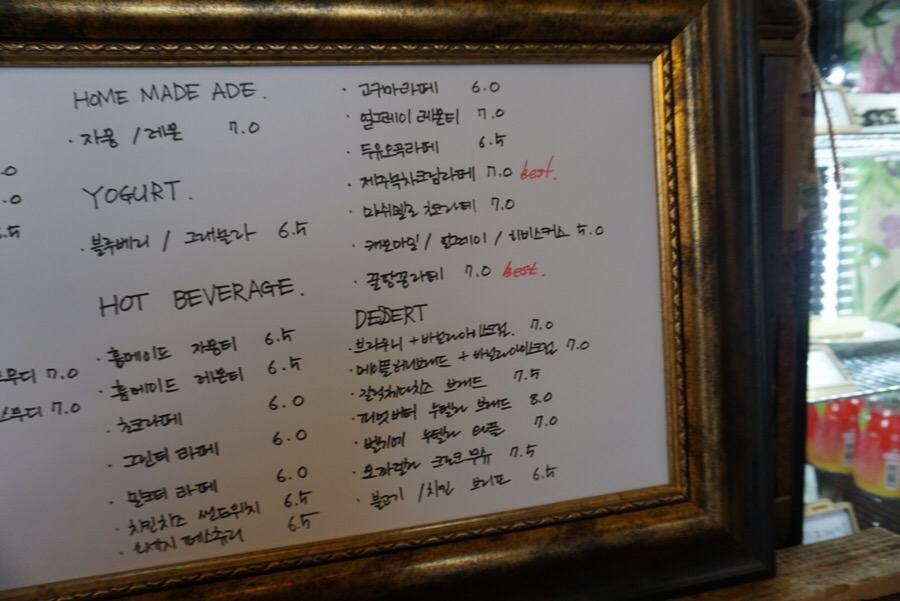 .0
.0
.5
스무디 7.0
스무디 7.0
HOME MADE ADE.
· 자몽 / 레몬 7.0
YOGURT.
· 블루베리 / 그래놀라 6.5
HOT BEVERAGE.
· 홈메이드 자몽티 6.5
· 홈메이드 레몬티 6.5
· 초코라떼 6.0
· 그린티 라떼 6.0
· 밀크티 라떼 6.0
· 치킨치즈 샌드위치 6.5
· 소세지 페스츄리 6.5
· 고구마라떼 6.0
· 얼그레이 레몬티 7.0
· 두유오곡라떼 6.5
· 제주녹차크림라떼 7.0 best.
· 마쉬멜로 초코라떼 7.0
· 캐모마일 / 얼그레이 / 히비스커스 5.0
· 꿀땅콩라떼 7.0 best.
DEDERT
· 브라우니 + 바닐라아이스크림. 7.0
· 메이플허니브레드 + 바닐라아이스크림 7.0
· 갈릭체다치즈 브레드 7.5
· 피넛버터 누텔라 브레드 8.0
· 벨기에 누텔라 와플 7.0
· 모짜렐라 크로크무슈 7.5
· 불고기 / 치킨 브리또 6.5